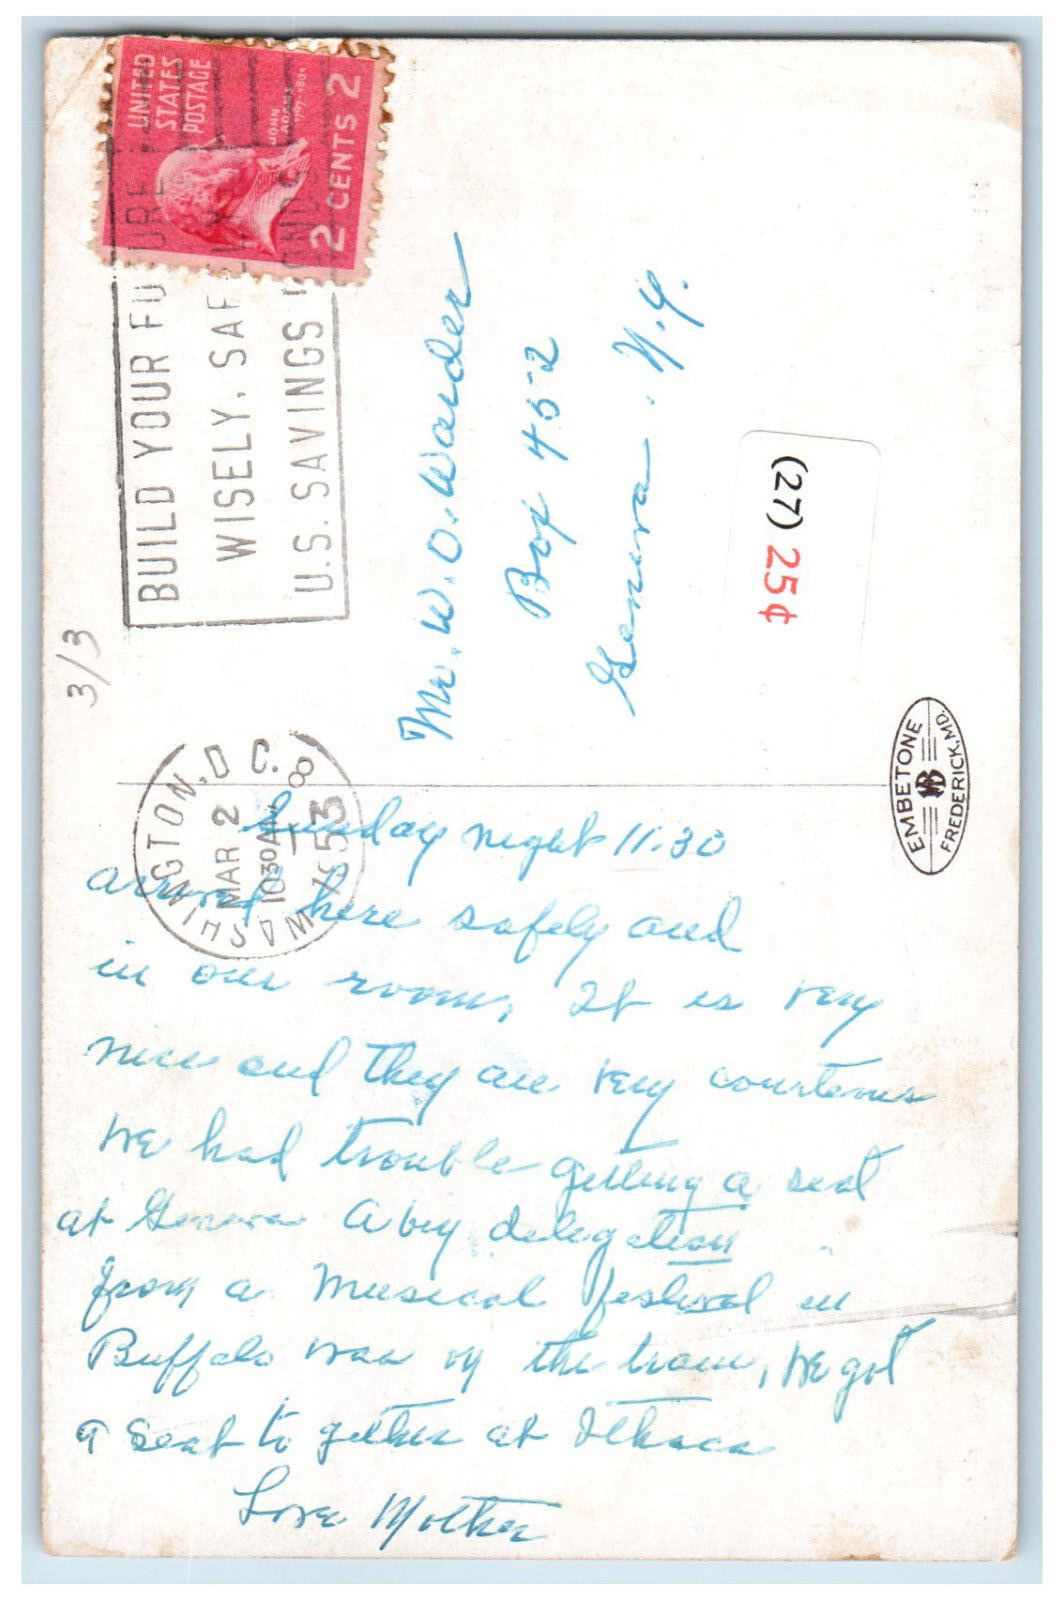 UNITED
STATES
POSTAGE
JOHN
ADAMS
1797-1801
2 CENTS 2
BUILD YOUR FUTURE
WISELY, SAFELY
U.S. SAVINGS BONDS
3/3
WASHINGTON, D.C. 8
MAR 2
10 30 AM
1953
Mr. W. O. Warder
Box 452
Geneva. N.Y.
(27) 25¢
EMBETONE
FREDERICK, MD.
Sunday night 11.30
arrived here safely and
in our room, It is very
nice and they are very courteous
We had trouble getting a seat
at Geneva A big delegation
from a Musical festival in
Buffalo was on the train, we got
a seat to gether at Ithaca
Love Mother